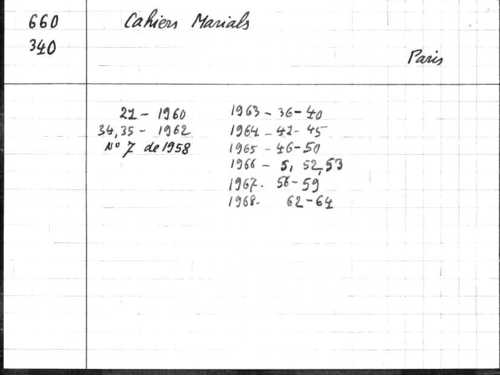 660 Cahiers Marials
340
Paris
21 - 1960
34, 35 - 1962
N° 7 de 1958
1963 - 36-40
1964 - 42-45
1965 - 46-50
1966 - 5, 52, 53
1967. 56-59
1968. 62-64